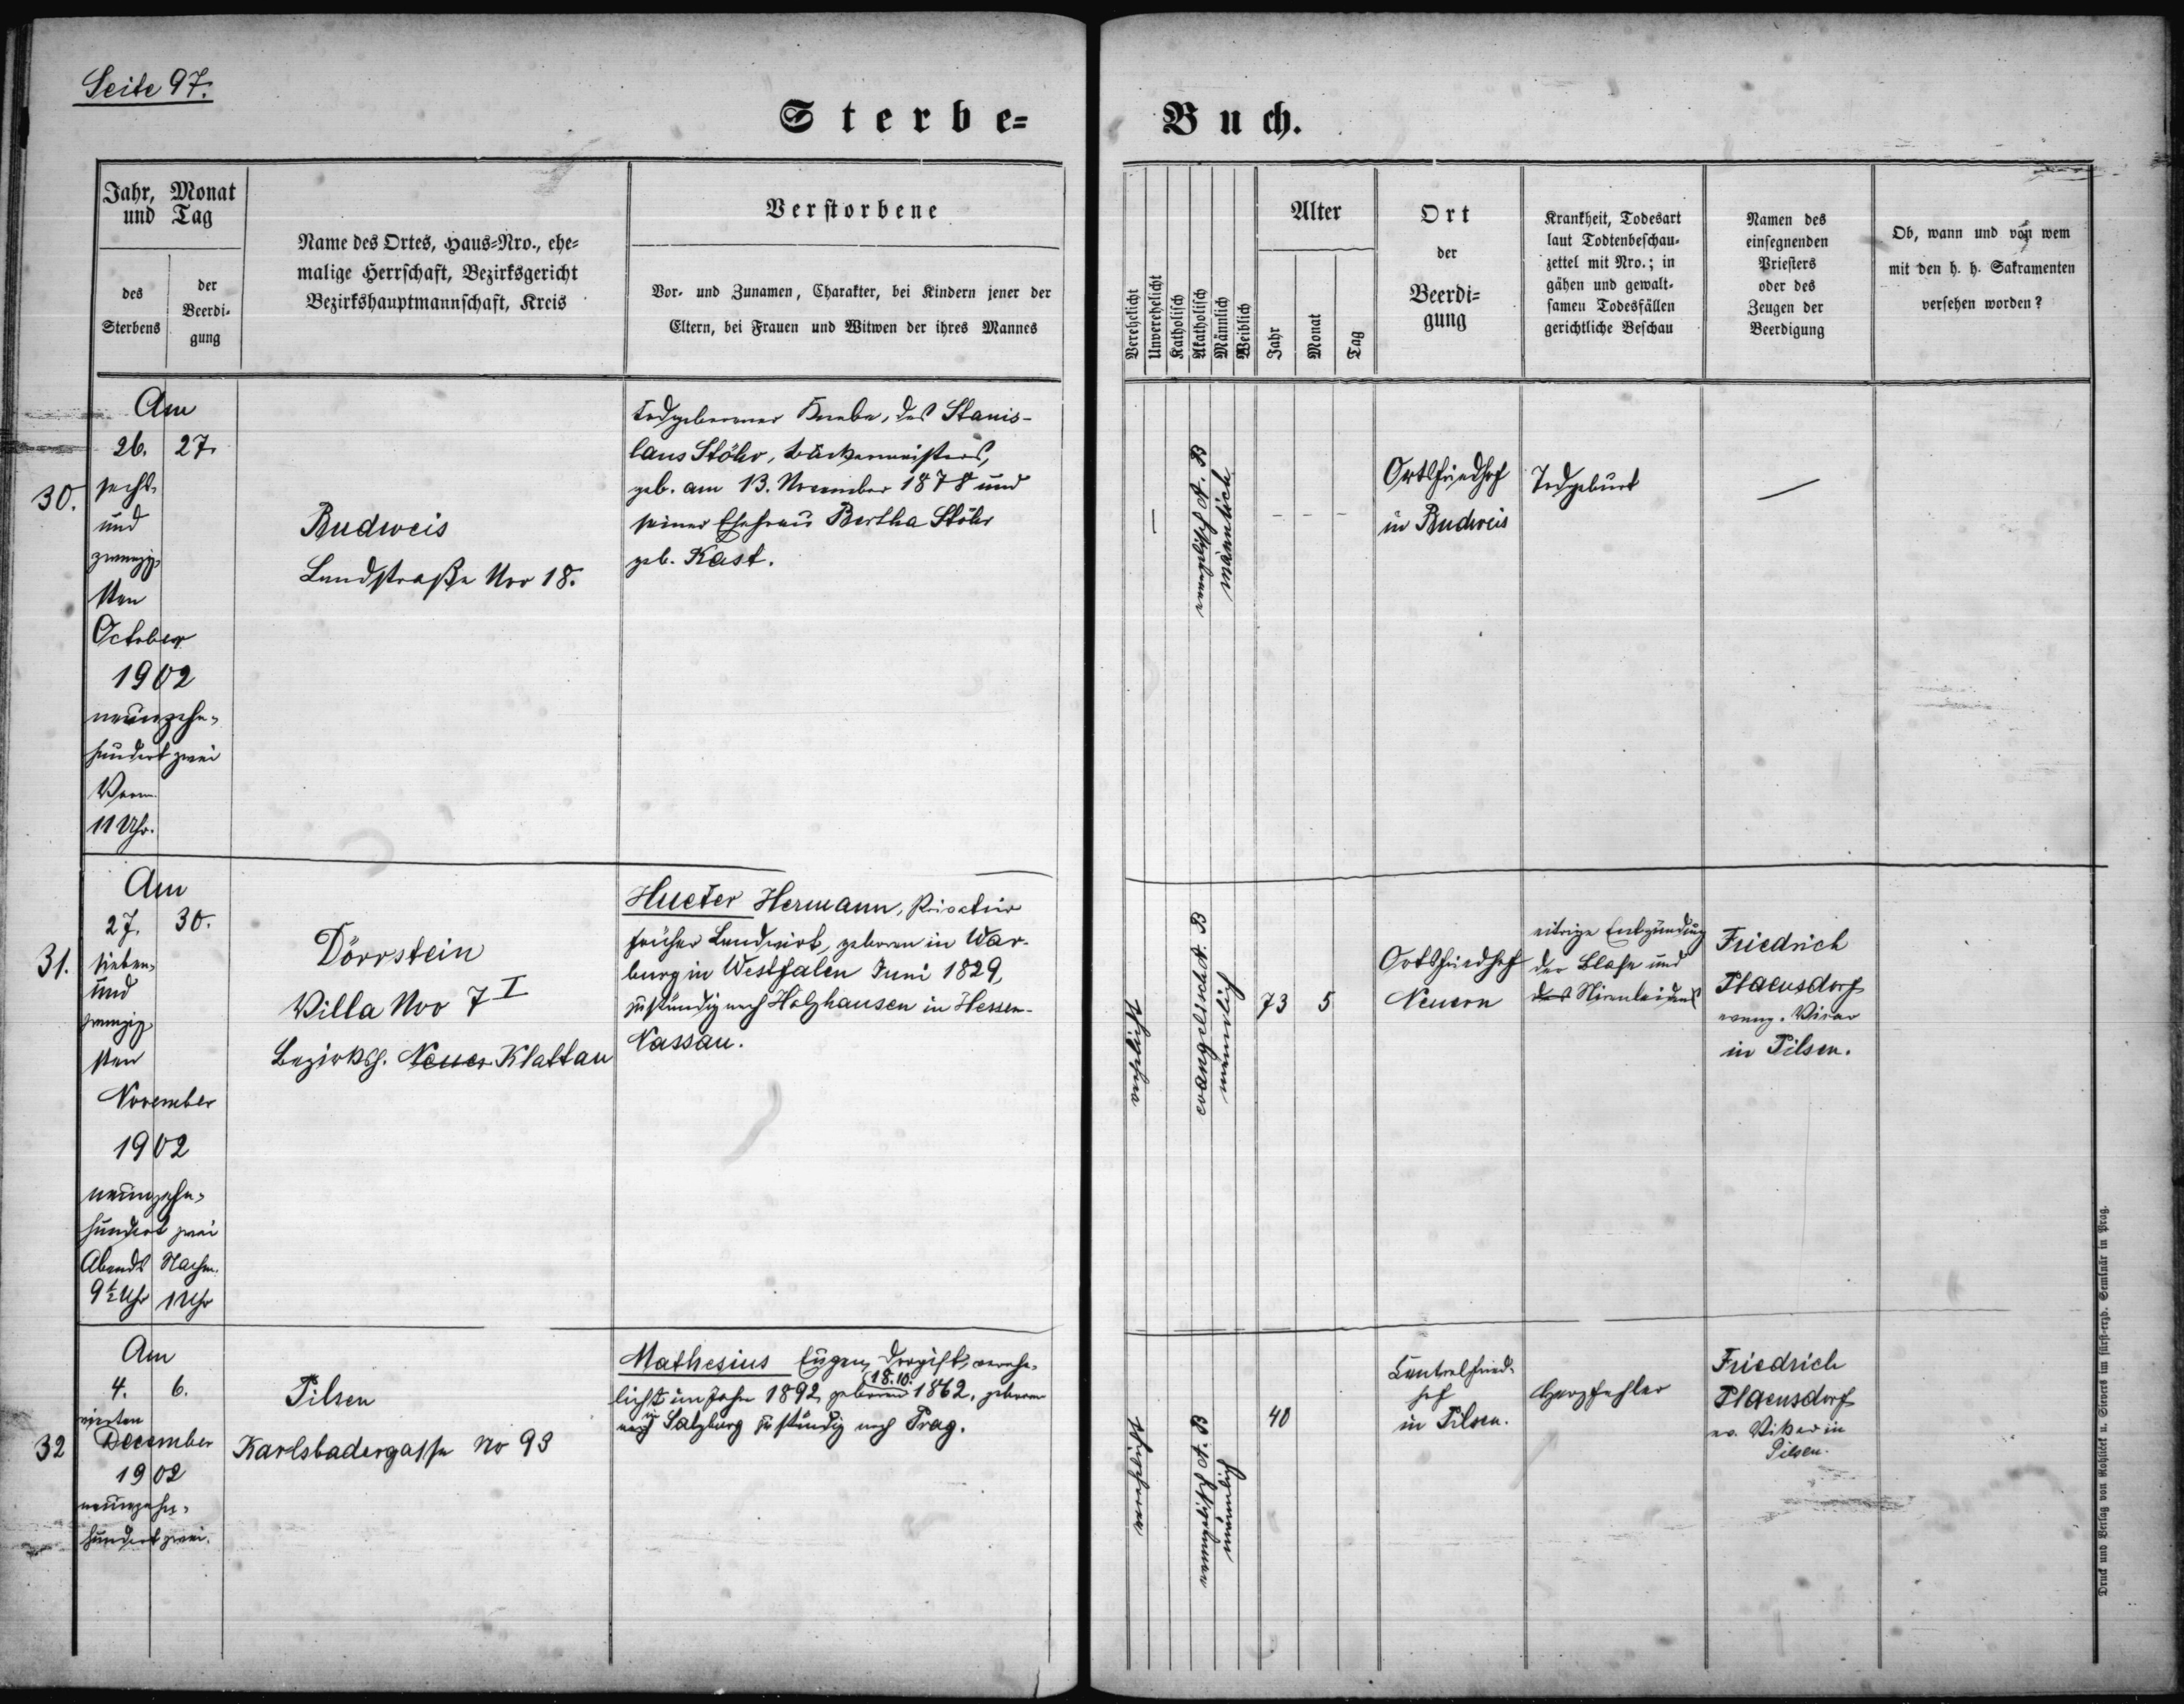 Seite 97.
Sterbe= Buch.
Jahr, Monat
und Tag
des
Sterbens
der
Beerdi-
gung
Name des Ortes, Haus-Nro., ehe-
malige Herrschaft, Bezirksgericht
Bezirkshauptmannschaft, Kreis
Verstorbene
Vor- und Zunamen, Charakter, bei Kindern jener der
Eltern, bei Frauen und Witwen der ihres Mannes
Verehelicht
Unverehelicht
Katholisch
Akatholisch
Männlich
Weiblich
Alter
Jahr
Monat
Tag
Ort
der
Beerdi=
gung
Krankheit, Todesart
laut Todtenbeschau-
zettel mit Nro.; in
gähen und gewalt-
samen Todesfällen
gerichtliche Beschau
Namen des
einsegnenden
Priesters
oder des
Zeugen der
Beerdigung
Ob, wann und von wem
mit den h. h. Sakramenten
versehen worden?
30.
Am
26. 27.
sechs-
und
zwanzig-
sten
October
1902
neunzehn-
hundert zwei
Vorm.
11 Uhr.
Budweis
Landstraße Nro 18.
Todgeborener Knabe, des Stanis-
laus Stöhr, Bäckermeisters,
geb. am 13. November 1878 und
seiner Ehefrau Bertha Stöhr
geb. Kast.
—
evangelisch A. B
männlich
- - -
Ortsfriedhof
in Budweis
Todgeburt
—
31.
Am
27. 30.
sieben-
und
zwanzig-
sten
November
1902
neunzehn-
hundert zwei
Abends Nachm.
9½ Uhr 1 Uhr
Dörrstein
Villa Nro 7 I
Bezirksh. Neuer Klattau
Hueter Hermann, Privatier
früher Landwirt, geboren in War-
burg in Westfalen Juni 1829,
zuständig nach Holzhausen in Hessen-
Nassau.
verehelicht
evangelisch A. B
männlich
73 5
Ortsfriedhof
Neuern
eitrige Entzündung
der Blase und
des Nierenleidens
Friedrich
evang. Vicar
in Pilsen.
32
Am
4. 6.
vierten
December
1902
neunzehn-
hundert zwei.
Pilsen
Karlsbadergasse No 93
Mathesius Eugen, Drogist, verehe-
licht im Jahre 1892, geboren 18.10. 1862, geboren
in Salzburg zuständig nach Prag.
verehelicht
evangelisch A. B
männlich
40
Centralfried-
hof
in Pilsen.
Herzfehler
Friedrich
ev. Vikar in
Pilsen.
Druck und Verlag von Rohlicek u. Sievers im fürst-erzb. Seminär in Prag.